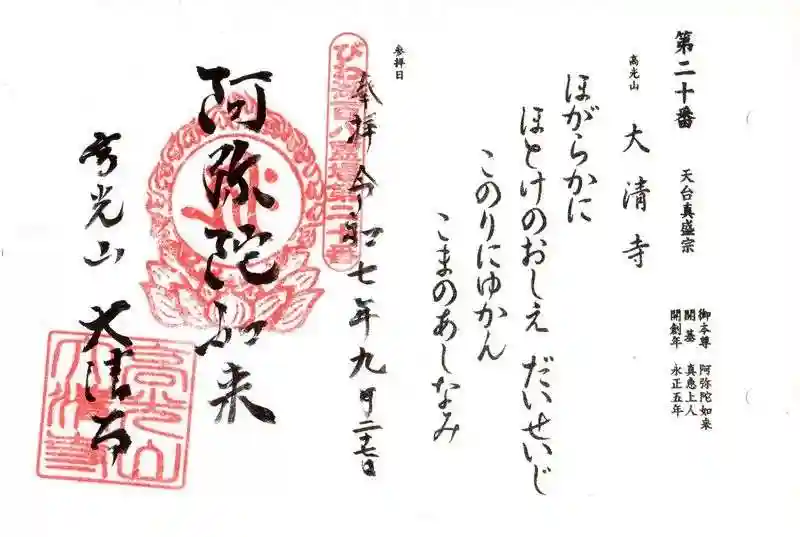 第二十番　天台真盛宗
高光山　大清寺
御本尊　阿弥陀如来
開基　真恵上人
開創年　永正五年
ほがらかに
ほとけのおしえ　だいせいじ
このりにゆかん
こまのあしなみ
参拝日
奉拝　令和七年九月二十七日
びわ湖百八霊場第二十番
阿弥陀如来
高光山　大清寺
高光山
大清寺